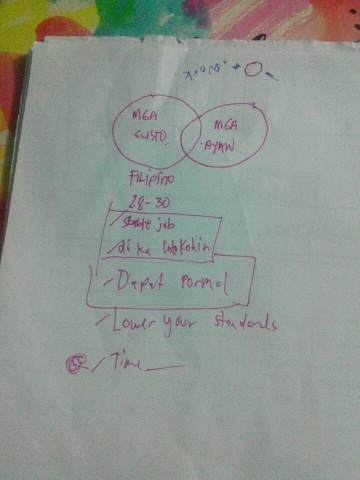 MGA
GUSTO
MGA
AYAW
Filipino
28-30
/ stable job
/ di ka lolokohin
/ Dapat Formal
/ Lower your standards
/ Time